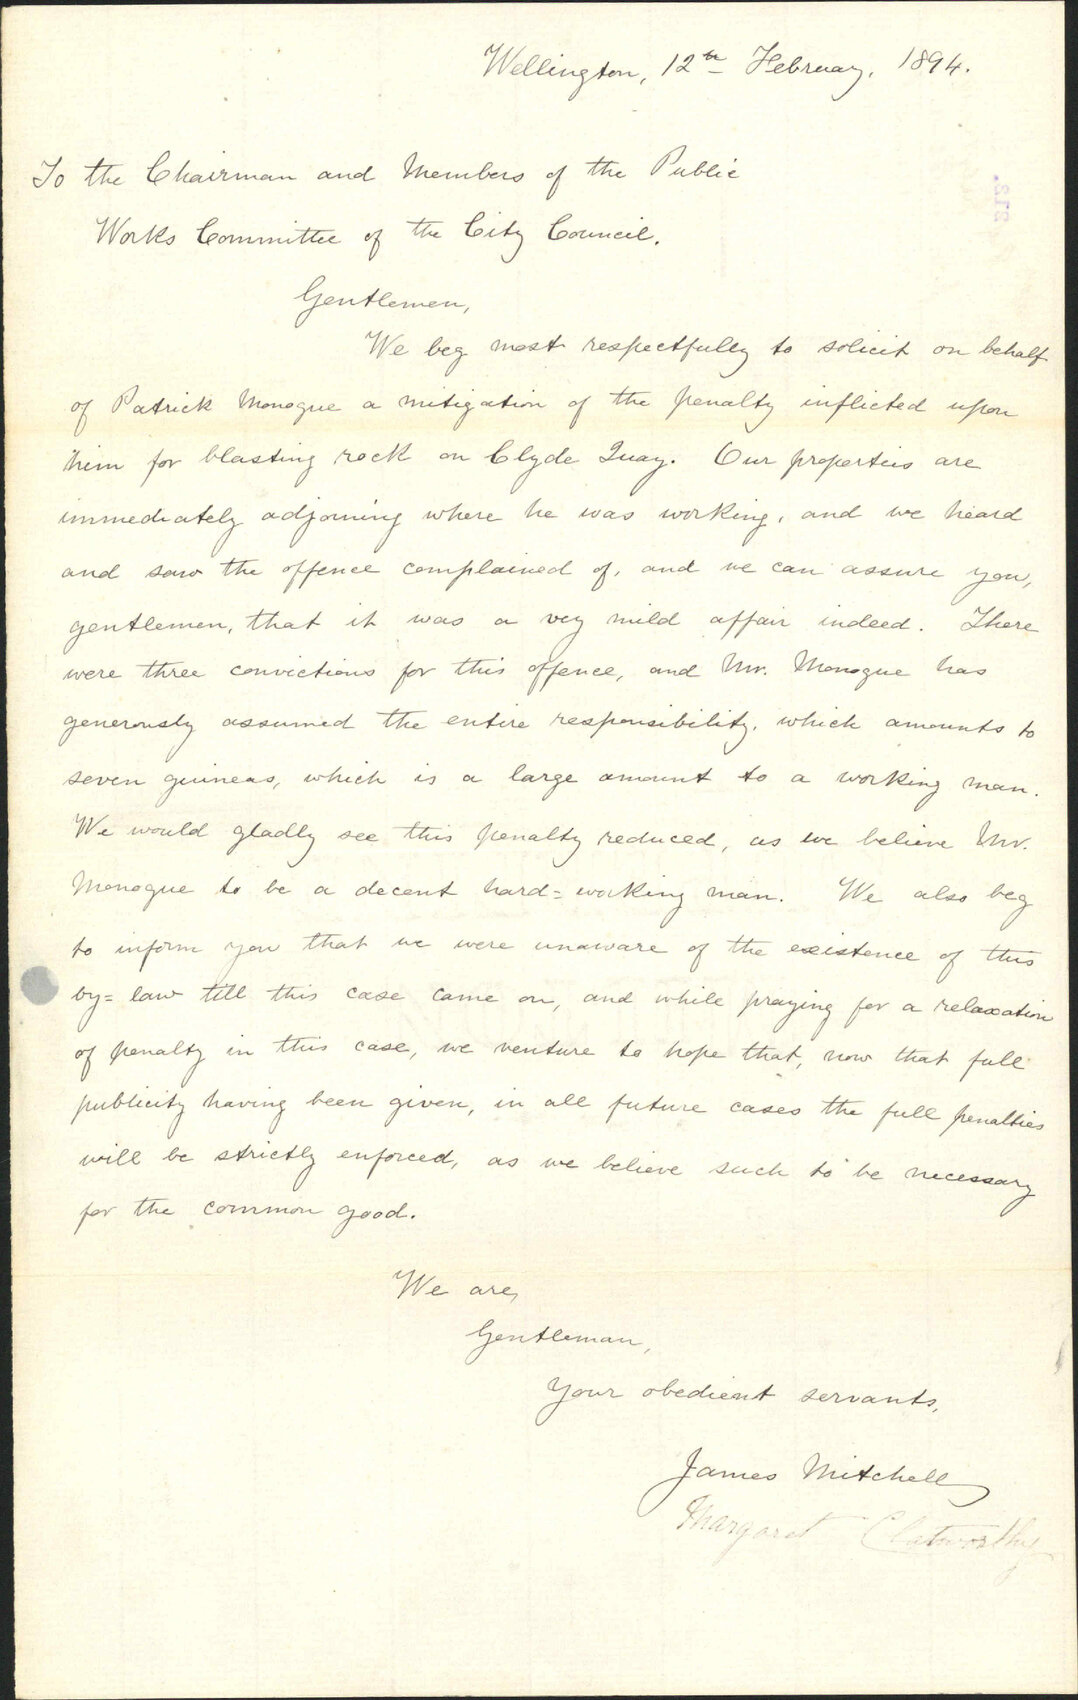 Wellington, 12th February, 1894.
To the Chairman and Members of the Public
Works Committee of the City Council.
Gentlemen,
We beg most respectfully to solicit on behalf
of Patrick Monogue a mitigation of the penalty inflicted upon
him for blasting rock on Clyde Quay. Our properties are
immediately adjoining where he was working, and we heard
and saw the offence complained of, and we can assure you,
gentlemen, that it was a very mild affair indeed. There
were three convictions for this offence, and Mr. Monogue has
generously assumed the entire responsibility, which amounts to
seven guineas, which is a large amount to a working man.
We would gladly see this penalty reduced, as we believe Mr.
Monogue to be a decent hard=working man. We also beg
to inform you that we were unaware of the existence of this
by=law till this case came on, and while praying for a relaxation
of penalty in this case, we venture to hope that, now that full
publicity having been given, in all future cases the full penalties
will be strictly enforced, as we believe such to be necessary
for the common good.
We are,
Gentleman,
Your obedient servants,
James Mitchell
Margaret Clatworthy